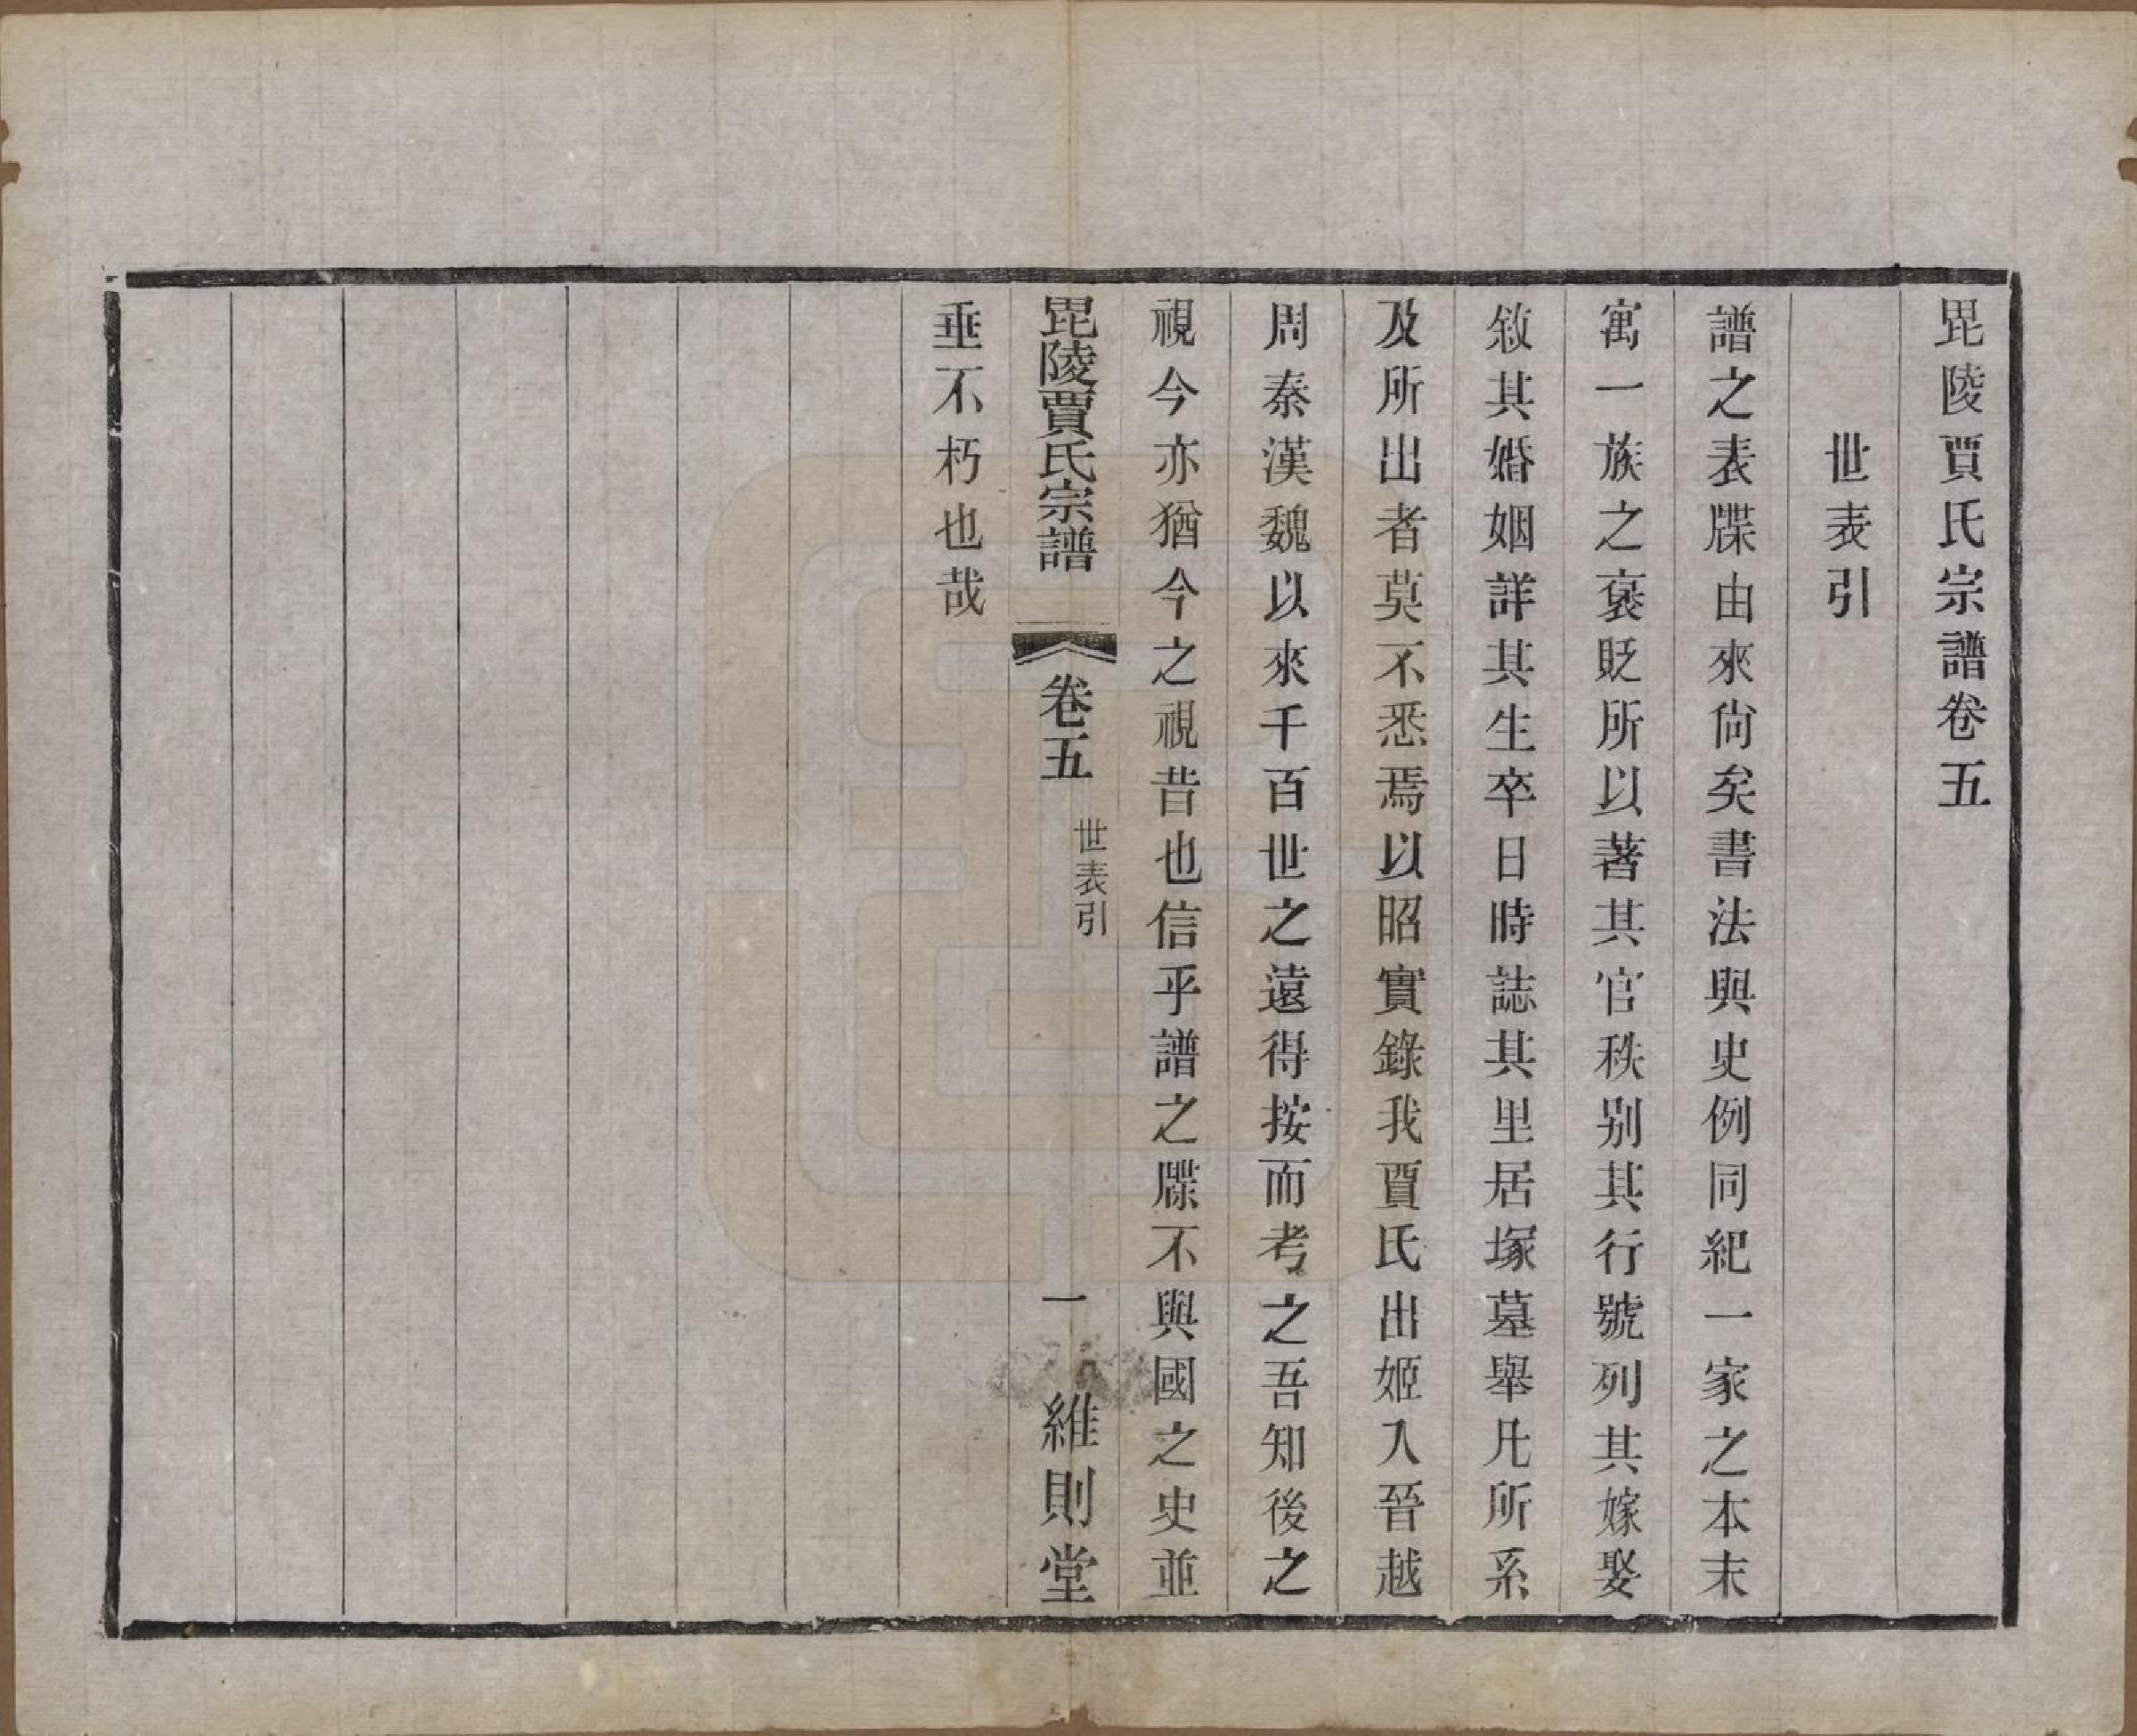 毘陵賈氏宗譜卷五
世表引
譜之表牒由來尙矣書法與史例同紀一家之本末
寓一族之褒貶所以著其官秩别其行號列其嫁娶
敘其婚姻詳其生卒日時誌其里居塚墓舉凡所系
及所出者莫不悉焉以昭實錄我賈氏出姬入晉越
周秦漢魏以來千百世之遠得按而考之吾知後之
視今亦猶今之視昔也信乎譜之牒不與國之史並
毘陵賈氏宗譜 卷五 世表引 一 維則堂
垂不朽也哉